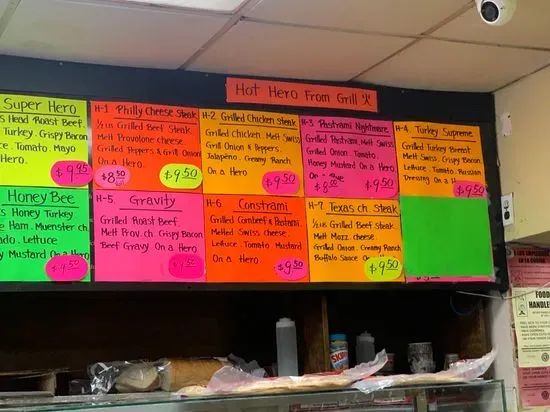 Hot Hero From Grill
Super Hero
Head Roast Beef
Turkey. Crispy Bacon
Tomato. Mayo
Hero.
$9.95
H-1 Philly Cheese Steak
Grilled Beef Steak
Melt Provolone cheese
Grilled Peppers & Grill Onion
On a Hero
$8.50
$9.50
H-2 Grilled Chicken Steak
Grilled Chicken. Melt Swiss
Grill Onion & Peppers.
Jalapeno. Creamy Ranch
On A Hero
$9.50
H-3 Pastrami Nightmare
Grilled Pastrami. Melt Swiss
Grilled Onion. Tomato.
Honey Mustard On a Hero
$9.50
H-4 Turkey Supreme
Grilled Turkey Breast
Melt Swiss. Crispy Bacon
Lettuce. Tomato. Russian
Dressing On a
$9.50
Honey Bee
Honey Turkey
Ham. Muenster ch.
Lettuce
Mustard On a Hero
$9.50
H-5 Gravity
Grilled Roast Beef
Melt Prov. ch. Crispy Bacon
Beef Gravy On a Hero
$9.50
H-6 Constrami
Grilled Cornbeef & Pastrami
Melted Swiss cheese.
Lettuce Tomato Mustard
On a Hero
$9.50
H-7 Texas ch. Steak
Grilled Beef Steak
Melt Mozz. cheese
Grilled Onion. Creamy Ranch
Buffalo Sauce On a Hero
$9.50
FOOD
HANDLE